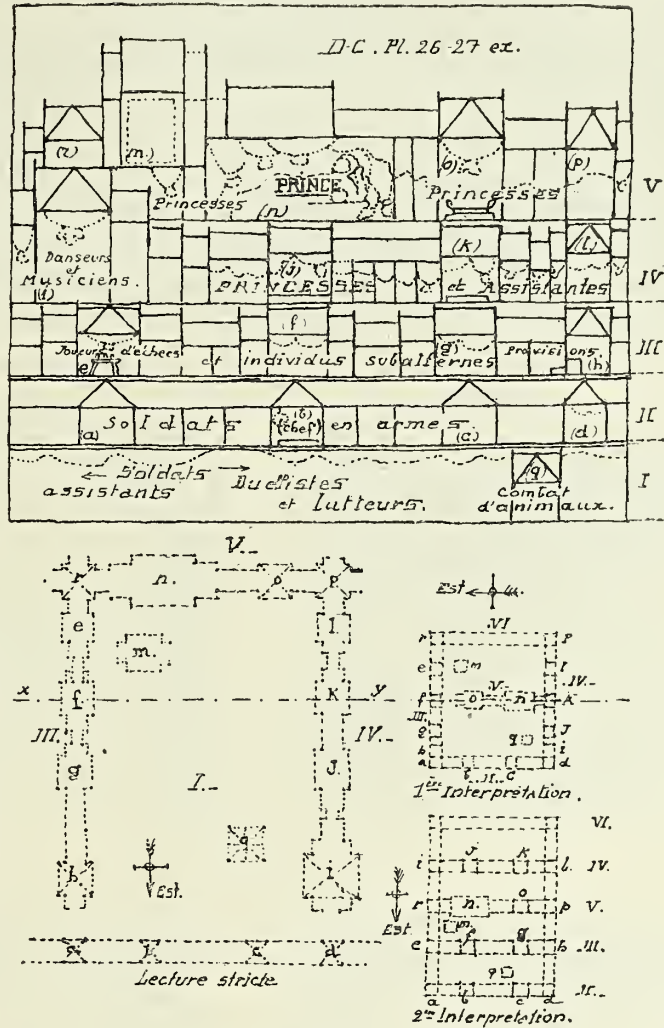 D-C. Pl. 26-27 ex.
(r)
(m.)
(o)
(p)
PRINCE
V
Princesses
(n)
Princesses
Danseurs
et
Musiciens.
(i)
(j)
(k)
(l)
PRINCESSES et Assistantes
IV
(f)
Joueurs d'échecs et individus subalternes Provisions.
III
e
(g)
(h)
Soldats (chef) en armes
II
(a)
(b)
(c)
(d)
← Soldats →
assistants
Duellistes
et lutteurs.
(q)
Combat
d'animaux.
I
V.
r
n.
o
p
e
m.
l.
x
f
k
y
III.
IV.
g
I.
J.
q
h
i
Est.
a
b
c
d
Lecture stricte
Est
VI
r
P
e
m
l
IV.
f
o
V.
n
k
III.
g
q
J
h
i
a
b
II.
c
d
1ère Interprétation.
VI.
J
K
i
l.
IV.
r
n.
o
p
V.
m
e
f
g
h
III.
q
II.
a
b
c
d
Est.
2me Interprétation.